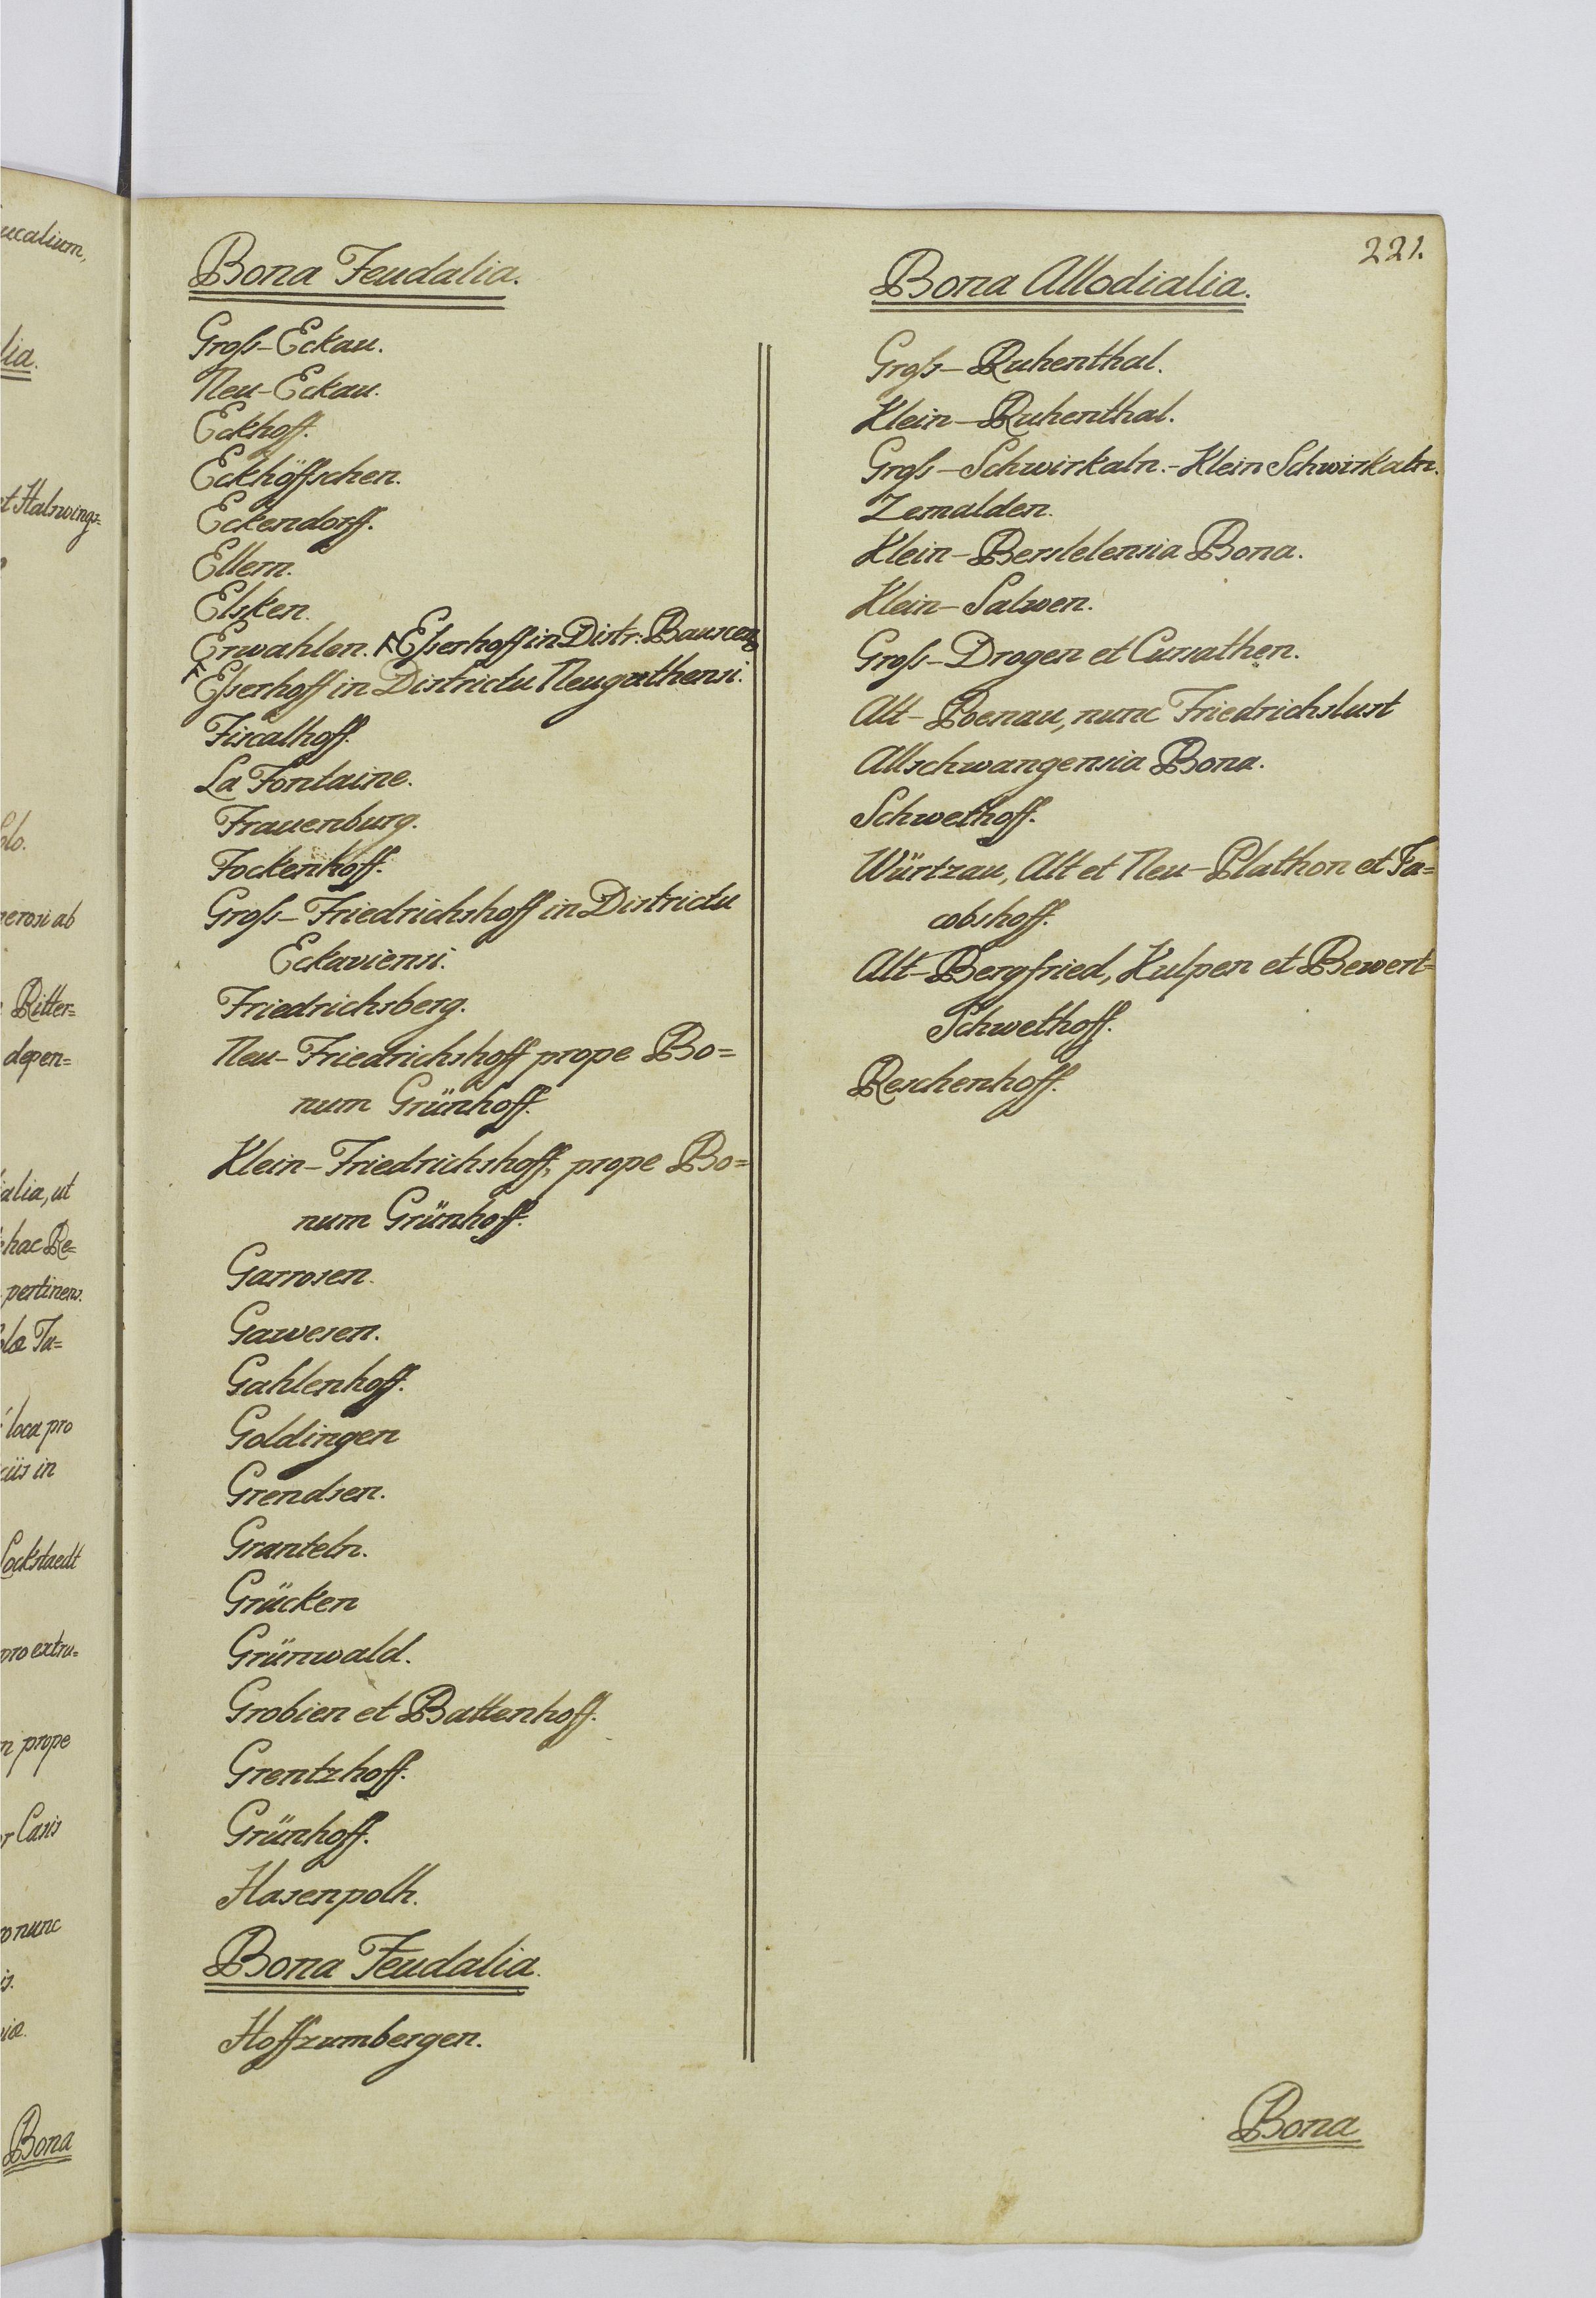 221.
Bona Feudalia.
Groß-Eckau.
Neu-Eckau.
Eckhoff.
Eckhöffschen.
Eckendorff.
Ellern.
Elsken.
Erwahlen. Eßerhoff in Distr: Bauscens
Eßerhoff in Districtu Neuguthensi.
Fiscalhoff.
La Fontaine.
Frauenburg.
Fockenhoff.
Groß-Friedrichshoff in Districtu
Eckaviensi.
Friedrichsberg.
Neu-Friedrichshoff prope Bo=
num Grünhoff.
Klein-Friedrichshoff, prope Bo=
num Grünhoff.
Garrosen.
Gawesen.
Gahlenhoff.
Goldingen
Grendsen.
Granteln.
Grücken
Grünwald.
Grobien et Battenhoff.
Grentzhoff.
Grünhoff.
Hasenpoth.
Bona Feudalia.
Hoffzumbergen.
Bona Allodialia.
Groß-Ruhenthal.
Klein-Ruhenthal.
Groß-Schwirkaln.-Klein Schwirkaln.
Zemalden.
Klein-Berstelensia Bona.
Klein-Salwen.
Groß-Drogen et Cursathen.
Alt-Poenau, nunc Friedrichslust
Allschwangensia Bona.
Schwethoff.
Würtzau, Alt et Neu-Plathon et Ja=
cobshoff.
Alt-Bergfried, Kulpen et Bewert=
Schwethoff.
Reschenhoff.
Bona
ucalium,
lia.
et Halswings=
olo.
nerosi ab
Ritter=
depen=
alia, ut
hac Re=
pertinens.
loca pro
ciis in
Lockstaedt
pro extra=
n prope
Casis
o nunc
is.
Bona